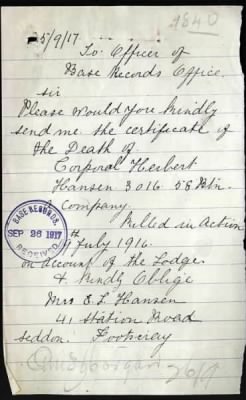 4840
25/9/17
To Officer of
Base Records Office.
Sir
Please would you kindly
send me the certificate of
the Death of
Corporal Herbert
Hansen 3016. 58 Btn.
A Company.
Killed in Action
BASE RECORDS
SEP 26 1917
RECEIVED
July 1916.
on account of the Lodge
& Kindly Oblige
Mrs E. L. Hansen
41 Station Road
Seddon. Footscray
26/9